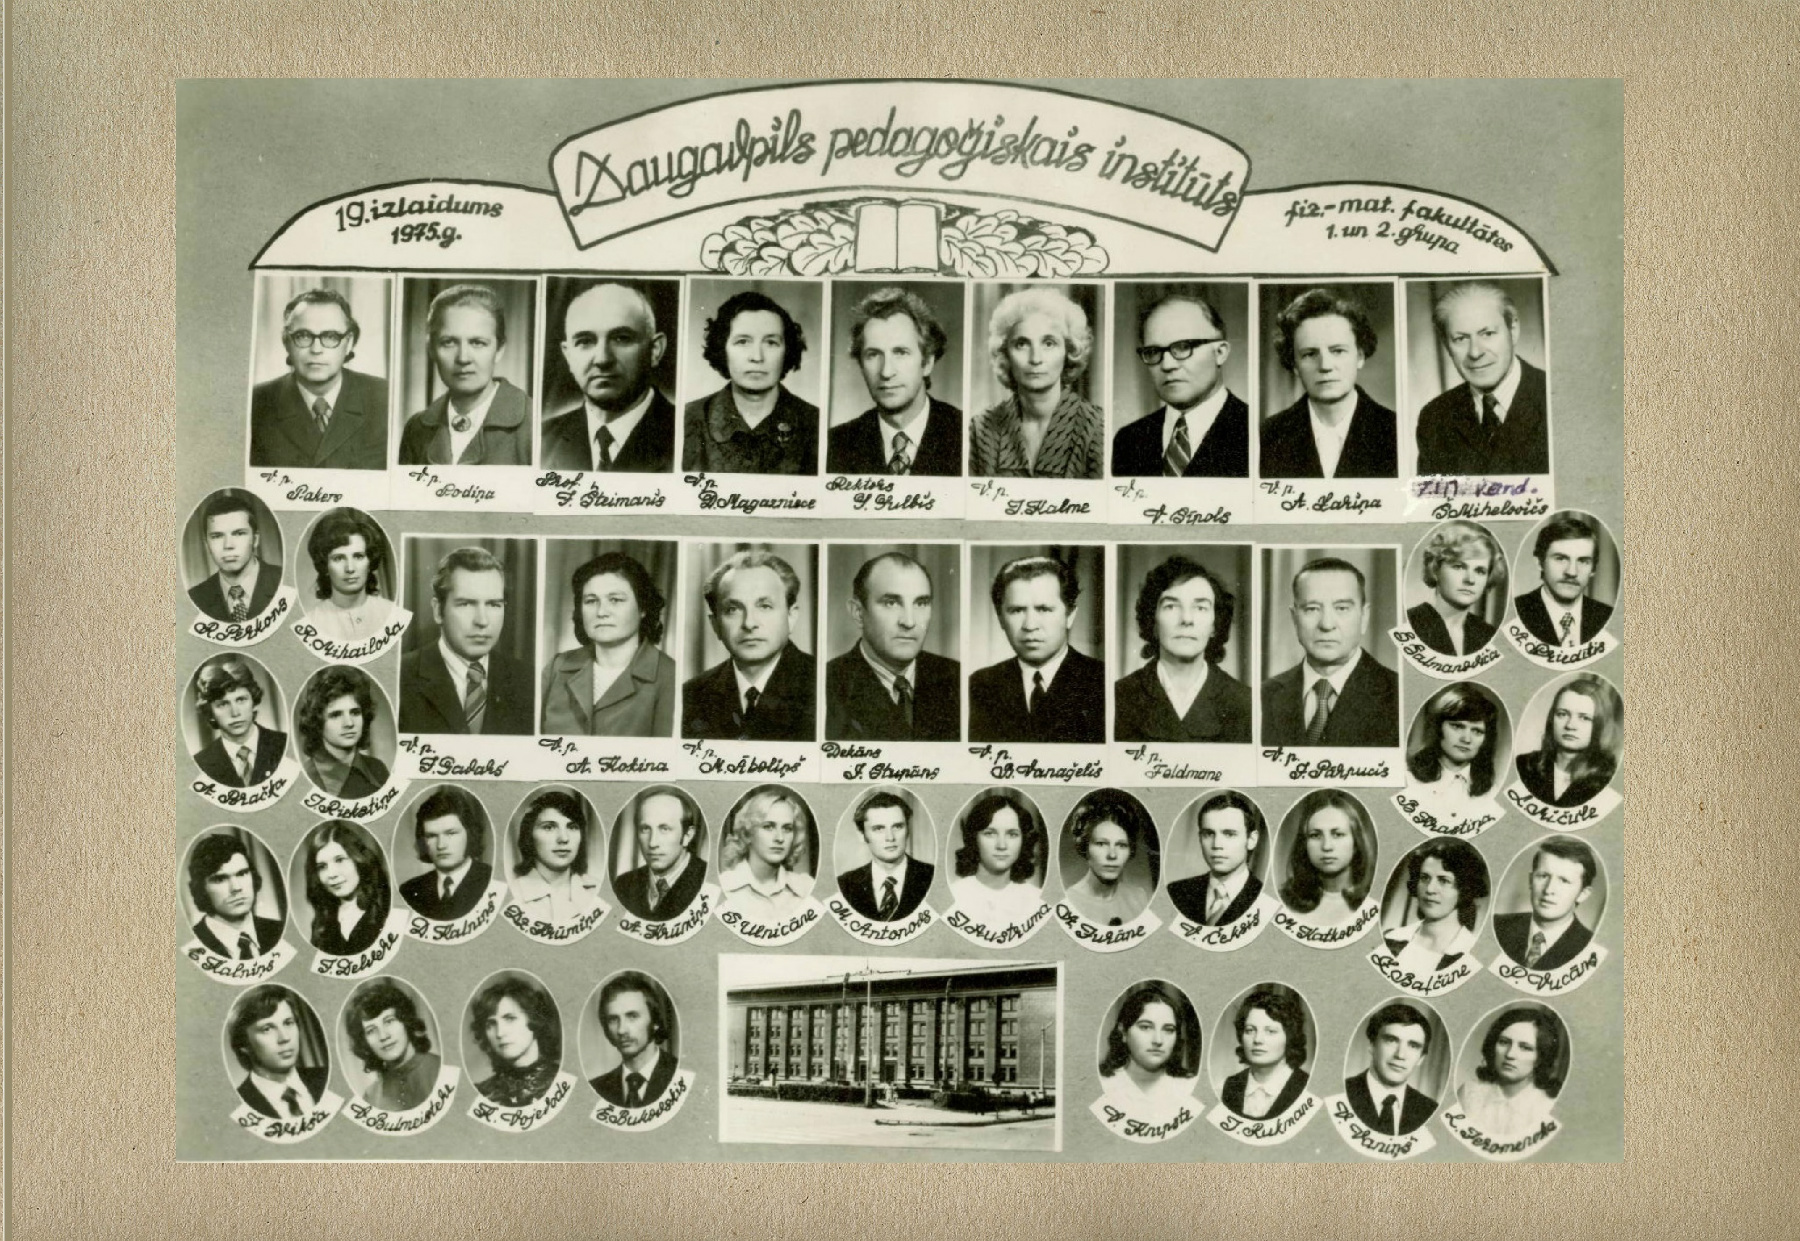 Daugavpils pedagoģiskais institūts
19. izlaidums
1975.g.
fiz.-mat. fakultātes
1. un 2. grupa
V.p.
Pakers
V.p.
Podiņa
Prof.
J. Šteimanis
V.p.
D. Magazniece
Rektors
J. Gulbis
V.p.
J. Kalme
V.p.
V. Sīpols
V.p.
A. Zariņa
zin. kand.
S. Mihelovičs
R. Perkons
R. Mihailova
S. Salmanoviča
A. Priedītis
V.p.
J. Gadaks
V.p.
A. Kokina
V.p.
M. Āboliņš
Dekāns
J. Stupāns
V.p.
B. Vanaģelis
V.p.
Feldmane
V.p.
J. Pārpucis
A. Bračka
J. Riekstiņa
B. Krastiņa
L. Ričule
E. Kalniņš
D. Kalniņš
Dz. Krūmiņa
A. Krūmiņš
S. Ulnicāne
M. Antonovs
J. Austruma
M. Turāne
V. Čekšis
M. Katkovska
Z. Baļčūne
P. Vucāns
Vikša
V. Bulmeistere
R. Vojevode
E. Bukovskis
V. Knipste
J. Rukmane
V. Vaniņš
L. Jeromenoka